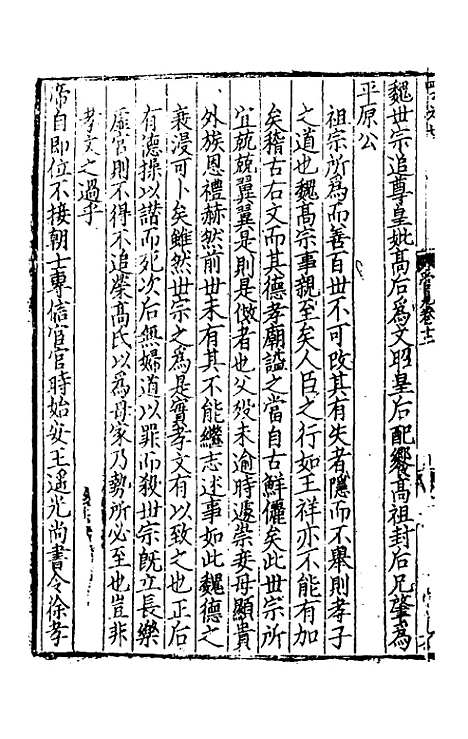 魏世宗追尊皇妣髙后爲文昭皇后配饗髙祖封后兄肇爲
平原公
祖宗所為而善百世不可改其有失者隱而不舉則孝子
之道也魏髙宗事親至矣人臣之行如王祥亦不能有加
矣稽古右文而其德孝廟謚之當自古鮮儷矣此世宗所
宜兢兢翼翼是則是傚者也父殁未逾時遽崇妾母顯貴
外族恩禮赫然前世未有其不能繼志述事如此魏德之
衰漫可卜矣雖然世宗之爲是實孝文有以致之也正后
有德操以譖而死次后無婦道以罪而殺世宗旣立長樂
虚官則不得不追榮髙氏以爲母家乃勢所必至也豈非
孝文之過乎
帝自即位不接朝士專信宦官時始安王遥光尚書令徐孝
管見卷十二